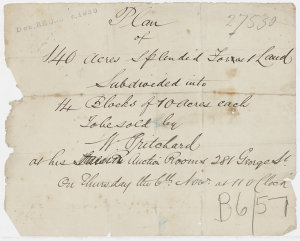 27530
Plan
of
140 Acres Splendid Forest Land
Subdivided into
14 Blocks of 10 acres each
To be sold by
W. Pritchard
at his Auction Rooms 281 George St
On Thursday the 6th Novr at 11 O'Clock
B6/57